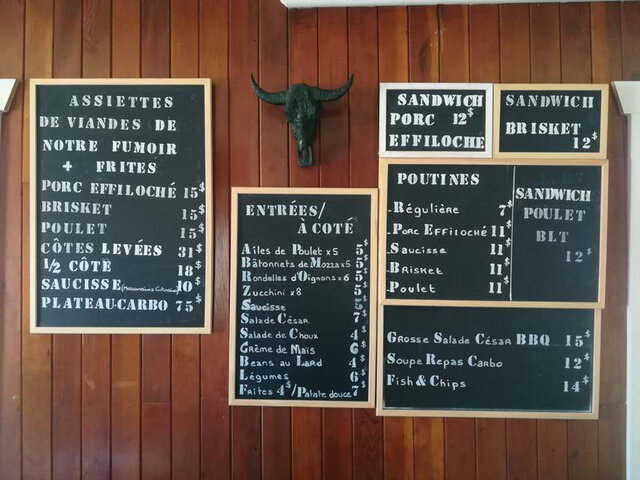 ASSIETTES
DE VIANDES DE
NOTRE FUMOIR
+ FRITES
PORC EFFILOCHÉ 15$
BRISKET 15$
POULET 15$
CÔTES LEVÉES 31$
1/2 CÔTE 18$
SAUCISSE 10$
PLATEAU-CARBO 75$
ENTRÉES/
À COTÉ
Ailes de Poulet x 5 5$
Bâtonnets de Mozza x 5 5$
Rondelles d'Oignons x 6 5$
Zucchini x 8 5$
Saucisse 5$
Salade César 7$
Salade de Choux 4$
Crème de Maïs 4$
Beans au Lard 4$
Légumes 6$
Frites 4$/Patate douce 7$
SANDWICH
PORC 12$
EFFILOCHÉ
SANDWICH
BRISKET
12$
POUTINES
- Régulière 7$
- Porc Effiloché 11$
- Saucisse 11$
- Brisket 11$
- Poulet 11$
SANDWICH
POULET
BLT
12$
Grosse Salade César BBQ 15$
Soupe Repas Carbo 12$
Fish & Chips 14$